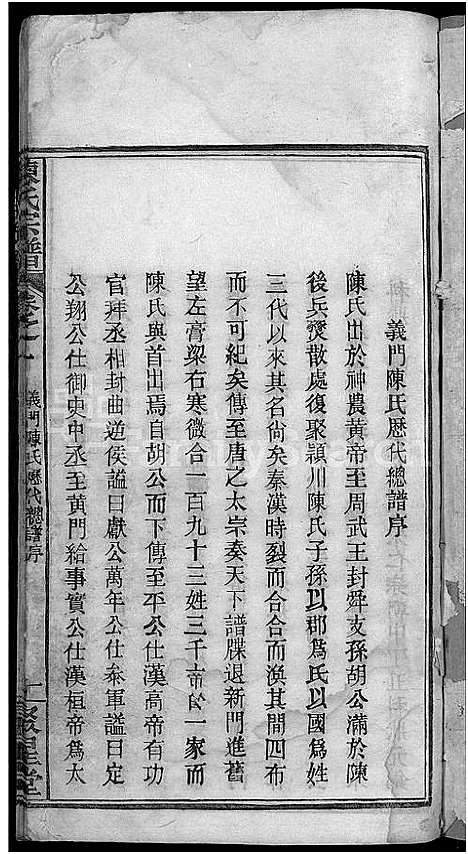 義門陳氏歷代總譜序
陳氏出於神農黃帝至周武王封舜支孫胡公滿於陳
後兵燹散處復聚潁川陳氏子孫以郡為氏以國為姓
三代以來其名尚矣秦漢時裂而合合而渙其間四布
而不可紀矣傳至唐之太宗奏天下譜牒退新門進舊
望左膏粱右寒微合一百九十三姓三千家一家而
陳氏與首出焉自胡公而下傳至平公仕漢高帝有功
官拜丞相封曲逆侯謚曰獻公萬年公仕參軍謚曰定
公翔公仕御史中丞至黃門給事實公仕漢桓帝為太
陳氏宗譜
卷之一
義門陳氏歷代總譜序
一
聚星堂